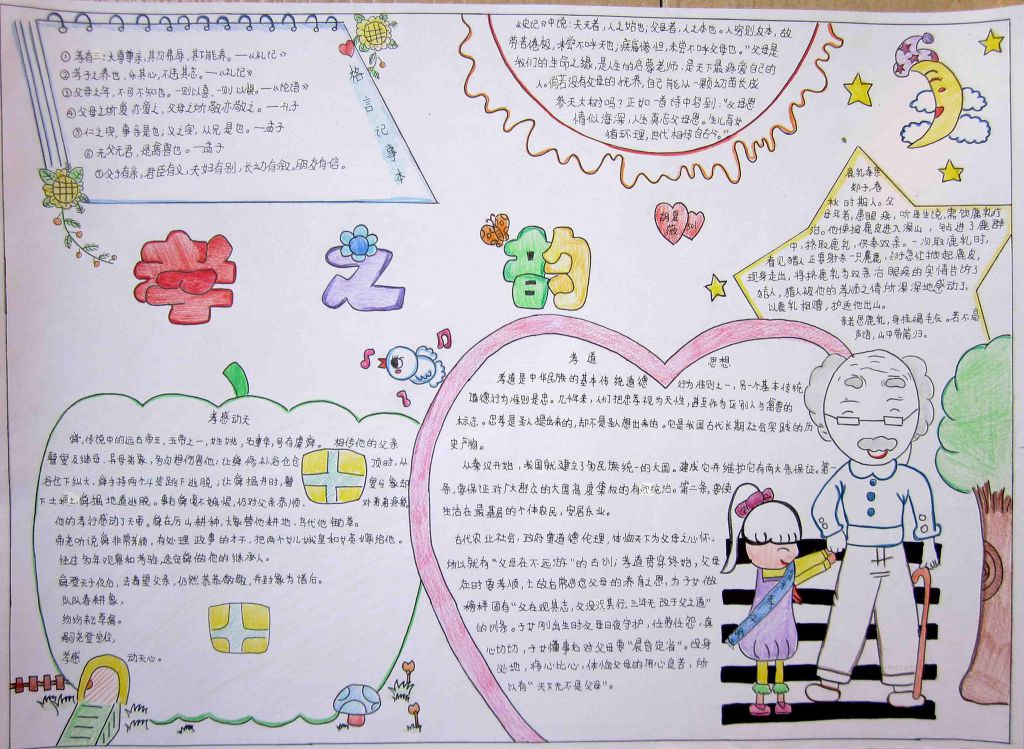 格言记事本
① 孝有三:大尊尊亲,其次弗辱,其下能养。——《礼记》
② 孝子之养也,乐其心,不违其志。——《礼记》
③ 父母之年,不可不知也。一则以喜,一则以惧。——《论语》
④ 父母之所爱亦爱之,父母之所敬亦敬之。——孔子
⑤ 仁之实,事亲是也;义之实,从兄是也。——孟子
⑥ 无父无君,是禽兽也。——孟子
⑦ 父子有亲,君臣有义,夫妇有别,长幼有叙,朋友有信。
《史记》中说:夫天者,人之始也;父母者,人之本也。人穷则反本,故
劳苦倦极,未尝不呼天也;疾痛惨怛,未尝不呼父母也。”父母是
我们的生命之源,是人生的启蒙老师,是天下最疼爱自己的
人。倘若没有父母的抚养,自己能从一颗幼苗长成
参天大树吗?正如一首诗中写到:“父母恩
情似海深,人生莫忘父母恩。生儿育女
循环理,世代相传自古今。”
鹿乳奉亲
郯子,春
秋时期人。父
母年老,患眼疾,听医生说,需饮鹿乳疗
治。他便披鹿皮进入深山,钻进了鹿群
中,挤取鹿乳,供奉双亲。一次取鹿乳时,
看见猎人正要射杀一只麂鹿,郯子急忙掀起鹿皮,
现身走出,将挤鹿乳为双亲治眼疾的实情告诉了
猎人,猎人被他的孝顺之情所深深地感动了,
以鹿乳相赠,护送他出山。
亲老思鹿乳,身挂褐毛衣。若不高
声语,山中带箭归。
胡夏薇
孝之韵
孝感动天
舜,传说中的远古帝王,五帝之一,姓姚,名重华,号有虞舜。相传他的父亲
瞽叟及继母、异母弟象,多次想伤害他:让舜修补谷仓仓顶时,从
谷仓下纵火,舜手持两个斗笠跳下逃脱;让舜掘井时,瞽叟与象却
下土填井,舜掘地道逃脱。事后舜毫不嫉恨,仍对父亲恭顺,对弟弟慈爱
他的孝行感动了天帝。舜在厉山耕种,大象替他耕地,鸟代他锄草。
帝尧听说舜非常孝顺,有处理政事的才干,把两个女儿娥皇和女英嫁给他。
经过多年观察和考验,选定舜做他的继承人。
舜登天子位后,去看望父亲,仍然恭恭敬敬,并封象为诸侯。
队队春耕象,
纷纷耘草禽。
嗣尧登宝位,
孝感动天心。
孝道思想
孝道是中华民族的基本传统道德行为准则之一,另一个基本传统
道德行为准则是忠。几千年来,人们把忠孝视为天性,甚至作为区别人与禽兽的
标志。忠孝是圣人提出来的,却不是圣人想出来的。它是我国古代长期社会实践的历
史产物。
从秦汉开始,我国就建立了多民族统一的大国。建成它并维护它有两大条保证。第一
条,要保证对广大群众的大国高度集权的有效统治。第二条,要使
生活在最基层的个体农民,安居乐业。
古代农业社会,政府重道德伦理,体恤天下为父母之心怀,
所以就有“父母在不远游”的古训,孝道贯穿始终,父母
在时要孝顺,亡故后常追念父母的养育之恩,为子女做
榜样固有“父在观其志,父没观其行,三年无改于父之道”
的训条。子女刚出生时父母日夜守护,任劳任怨,真
心切切,子女懂事后对父母要“晨昏定省”。设身
处地,将心比心,体恤父母的用心良苦,所
以有“天下无不是父母”。